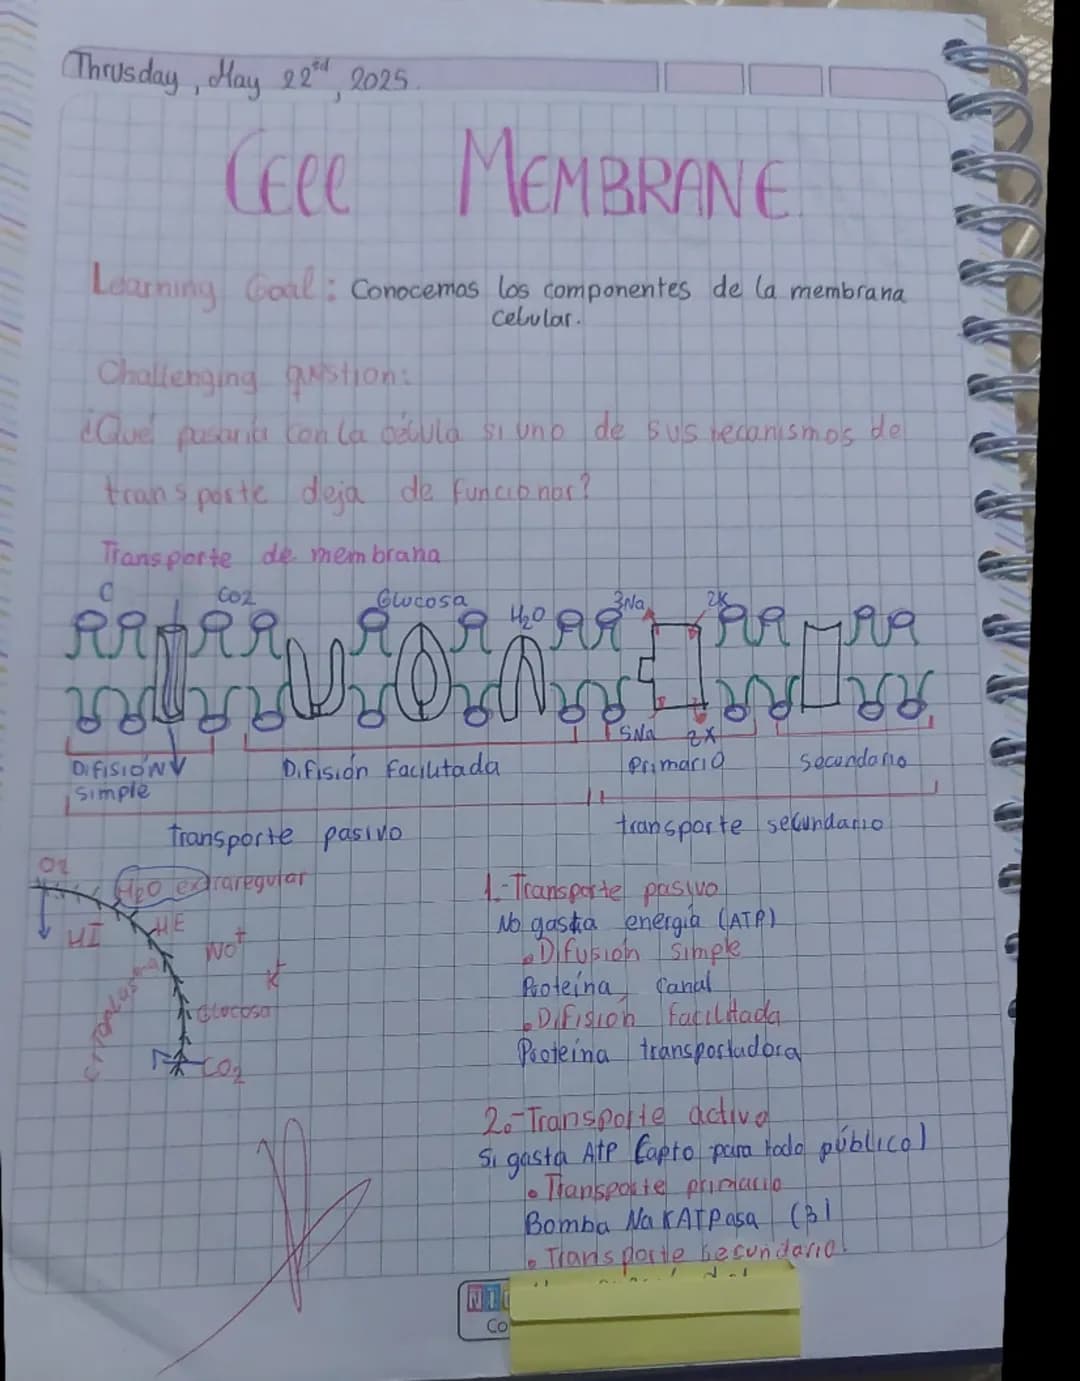 Thrusday, May 22nd, 2025.
Cell MEMBRANE
Learning Goal: Conocemos los componentes de la membrana
celular.
Challenging qustion:
¿Qué pasaría con la célula si uno de sus mecanismos de
transporte deja de funcionar?
Transporte de membrana
C CO2 Glucosa H2O 3Na 2K
3Na 2K
Difisión
simple
Difisión facilitada
Primario
Secundario
Transporte pasivo
transporte secundario
O2
H2O extraregular
HI
HE
K+
Glucosa
CO2
1.-Transporte pasivo
No gasta energía (ATP)
• Difusión simple
Proteína canal
• Difisión facilitada
Proteína transportadora
2.-Transporte activo
Si gasta ATP (apto para todo público)
• Transporte primario
Bomba Na KATPasa (B)
• Transporte secundario.
Co